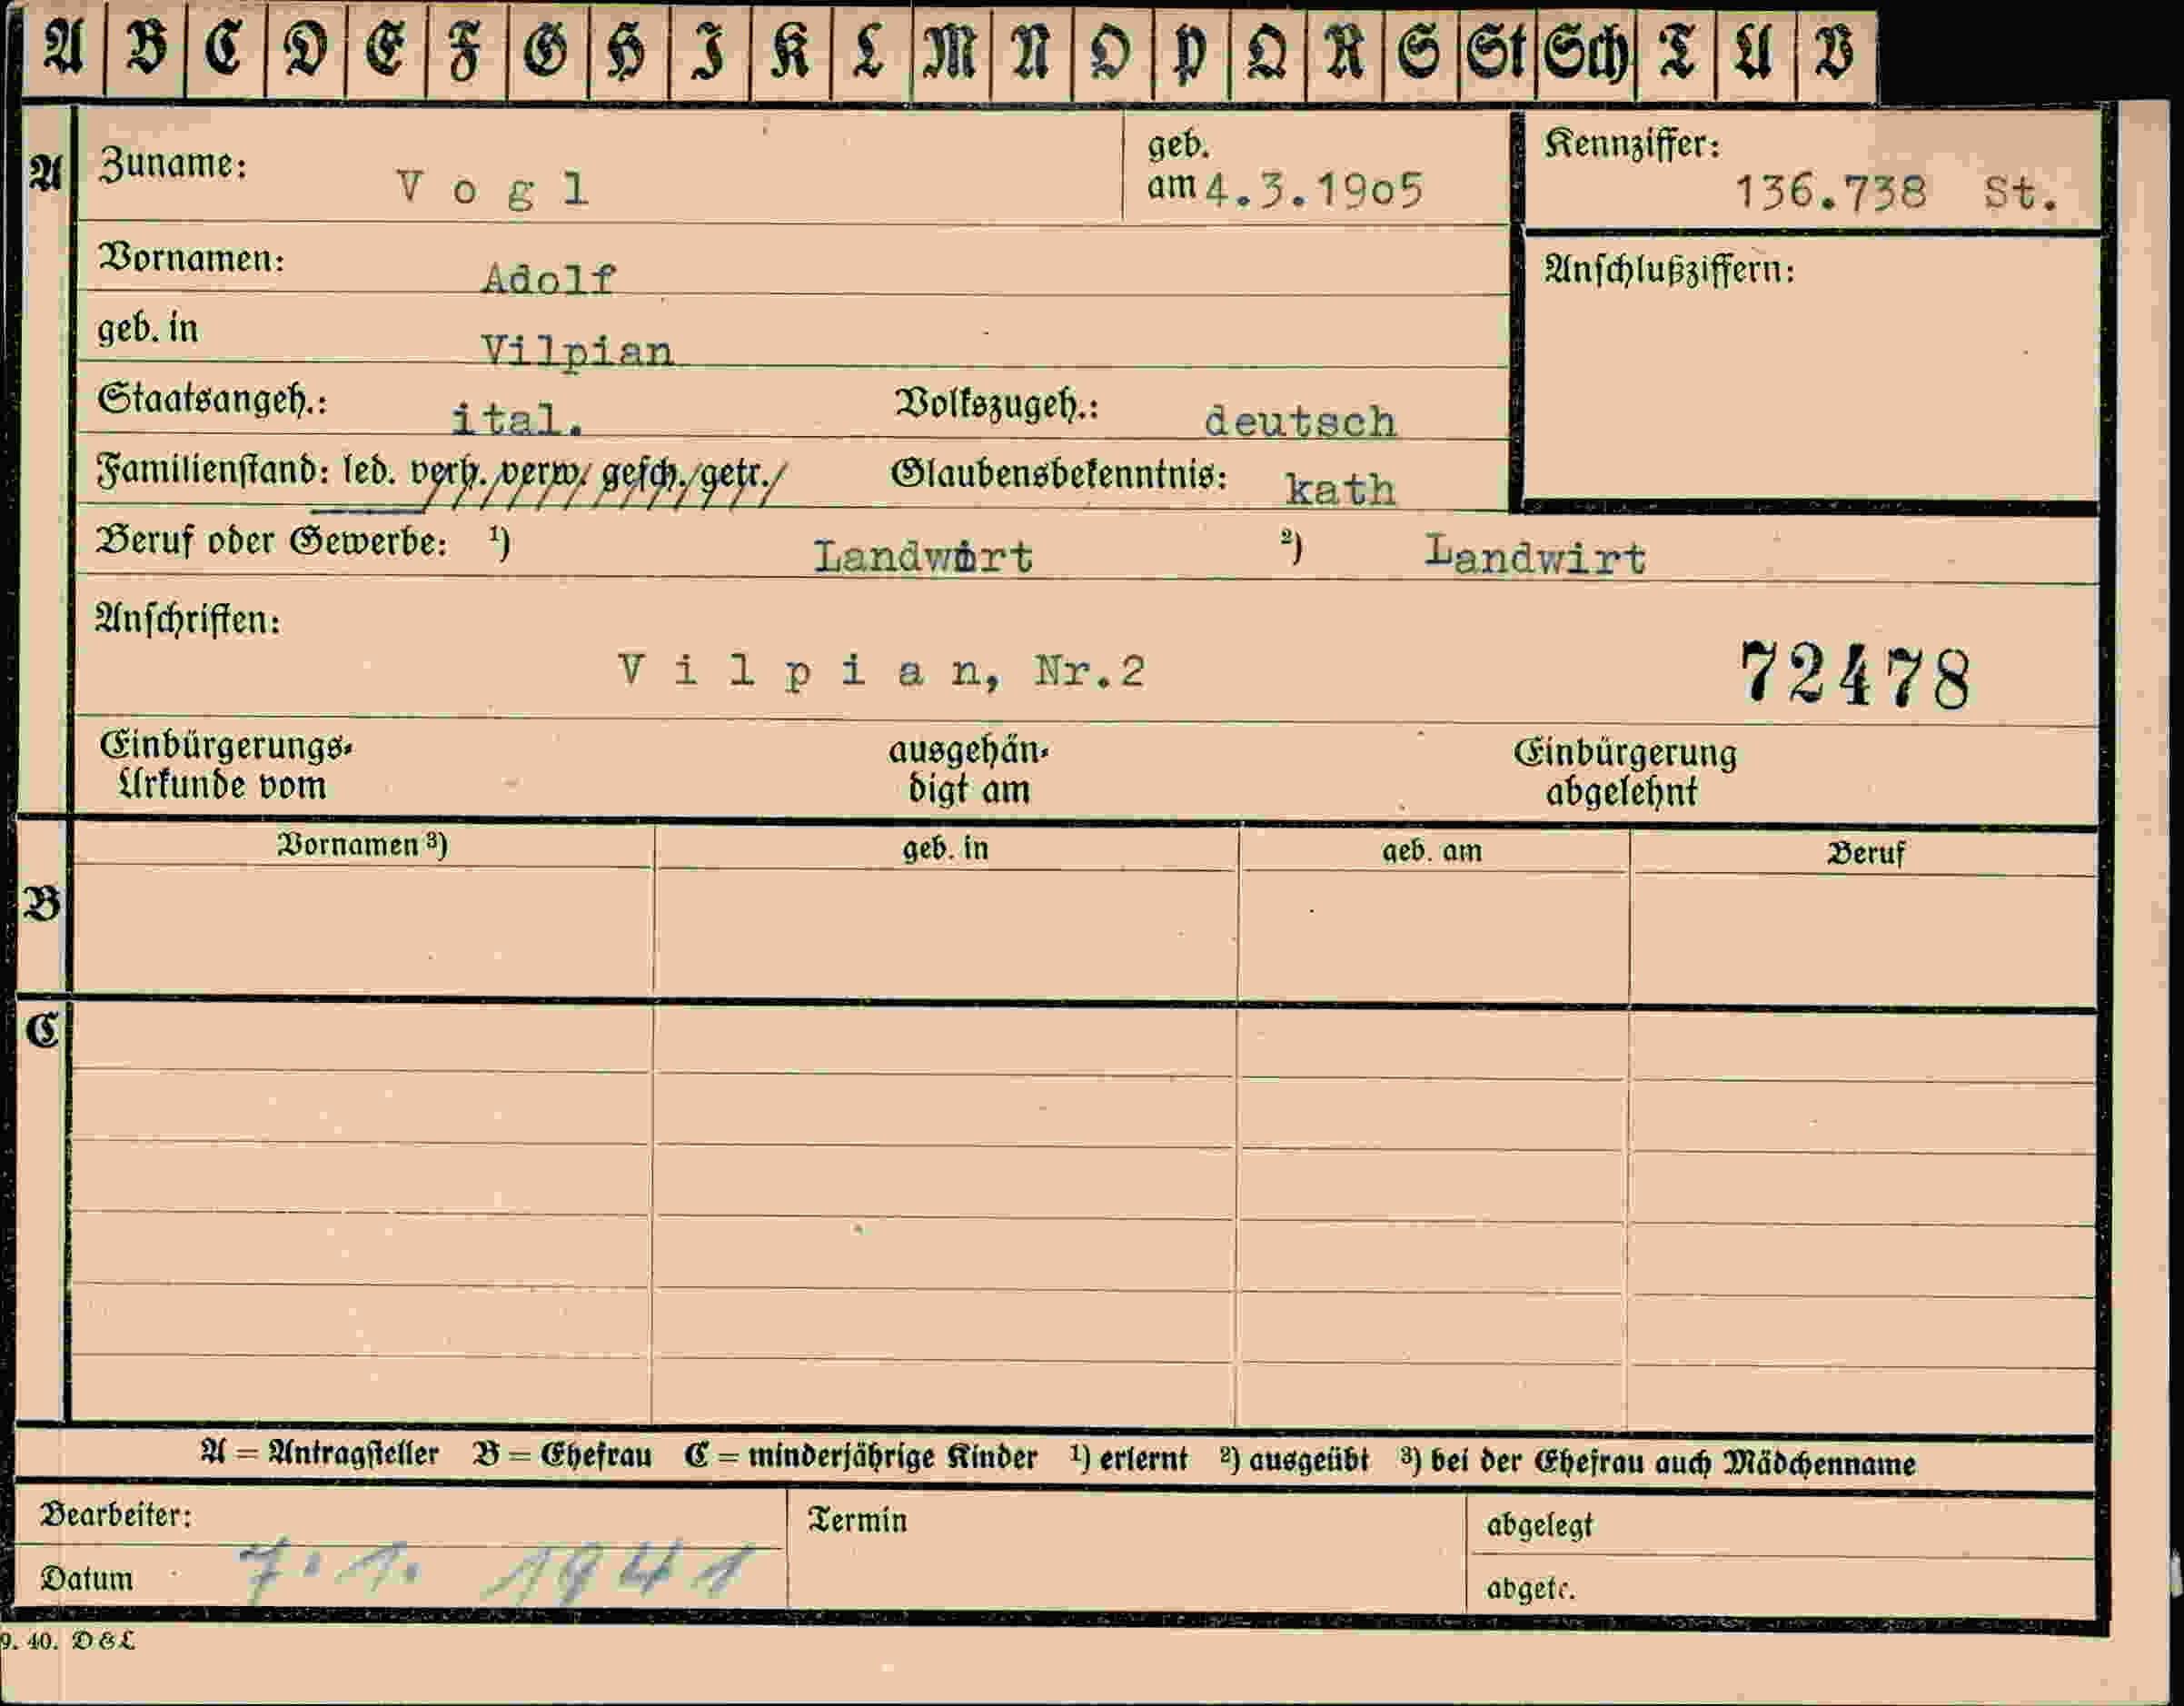 A B C D E F G H I K L M N O P Q R S St Sch T U V
A Zuname: Vogl geb. am 4.3.1905 Kennziffer: 136.738 St.
Vornamen: Adolf Anschlußziffern:
geb. in Vilpian
Staatsangeh.: ital. Volkszugeh.: deutsch
Familienstand: led. verh. verw. gesch. getr. Glaubensbekenntnis: kath
Beruf oder Gewerbe: ¹) Landwirt ²) Landwirt
Anschriften:
Vilpian, Nr.2 72478
Einbürgerungs- ausgehän- Einbürgerung
Urkunde vom digt am abgelehnt
Vornamen ³) geb. in geb. am Beruf
B
C
A = Antragsteller B = Ehefrau C = minderjährige Kinder ¹) erlernt ²) ausgeübt ³) bei der Ehefrau auch Mädchenname
Bearbeiter: Termin abgelegt
Datum 7. 1. 1941 abgetr.
9. 40. D & L